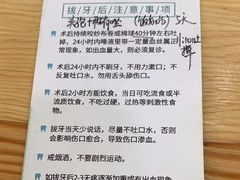 拔牙后注意事项
术后持续咬纱布卷或棉球40分钟左右吐
掉，24小时内唾液里带一定量血丝属正
常现象，如出血量大，则必须复诊。
术后24小时内不刷牙，不用力漱口；不
反复吐口水，勿用舌头舔伤口。
术后2小时方能饮食，当日可吃流食或半
流质饮食，不吃过硬，过热等刺激性食
物。
拔牙当天少说话，尽量不吐口水，否则
会影响伤口愈合，导致伤口渗血。
戒烟酒，不要剧烈运动。
如拔牙后2-3天疼逐渐加重或有出血现象